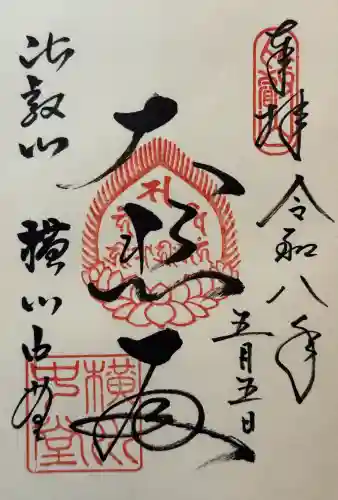 奉拝
令和八年
五月五日
大悲殿
比叡山
横川中堂
横川中堂